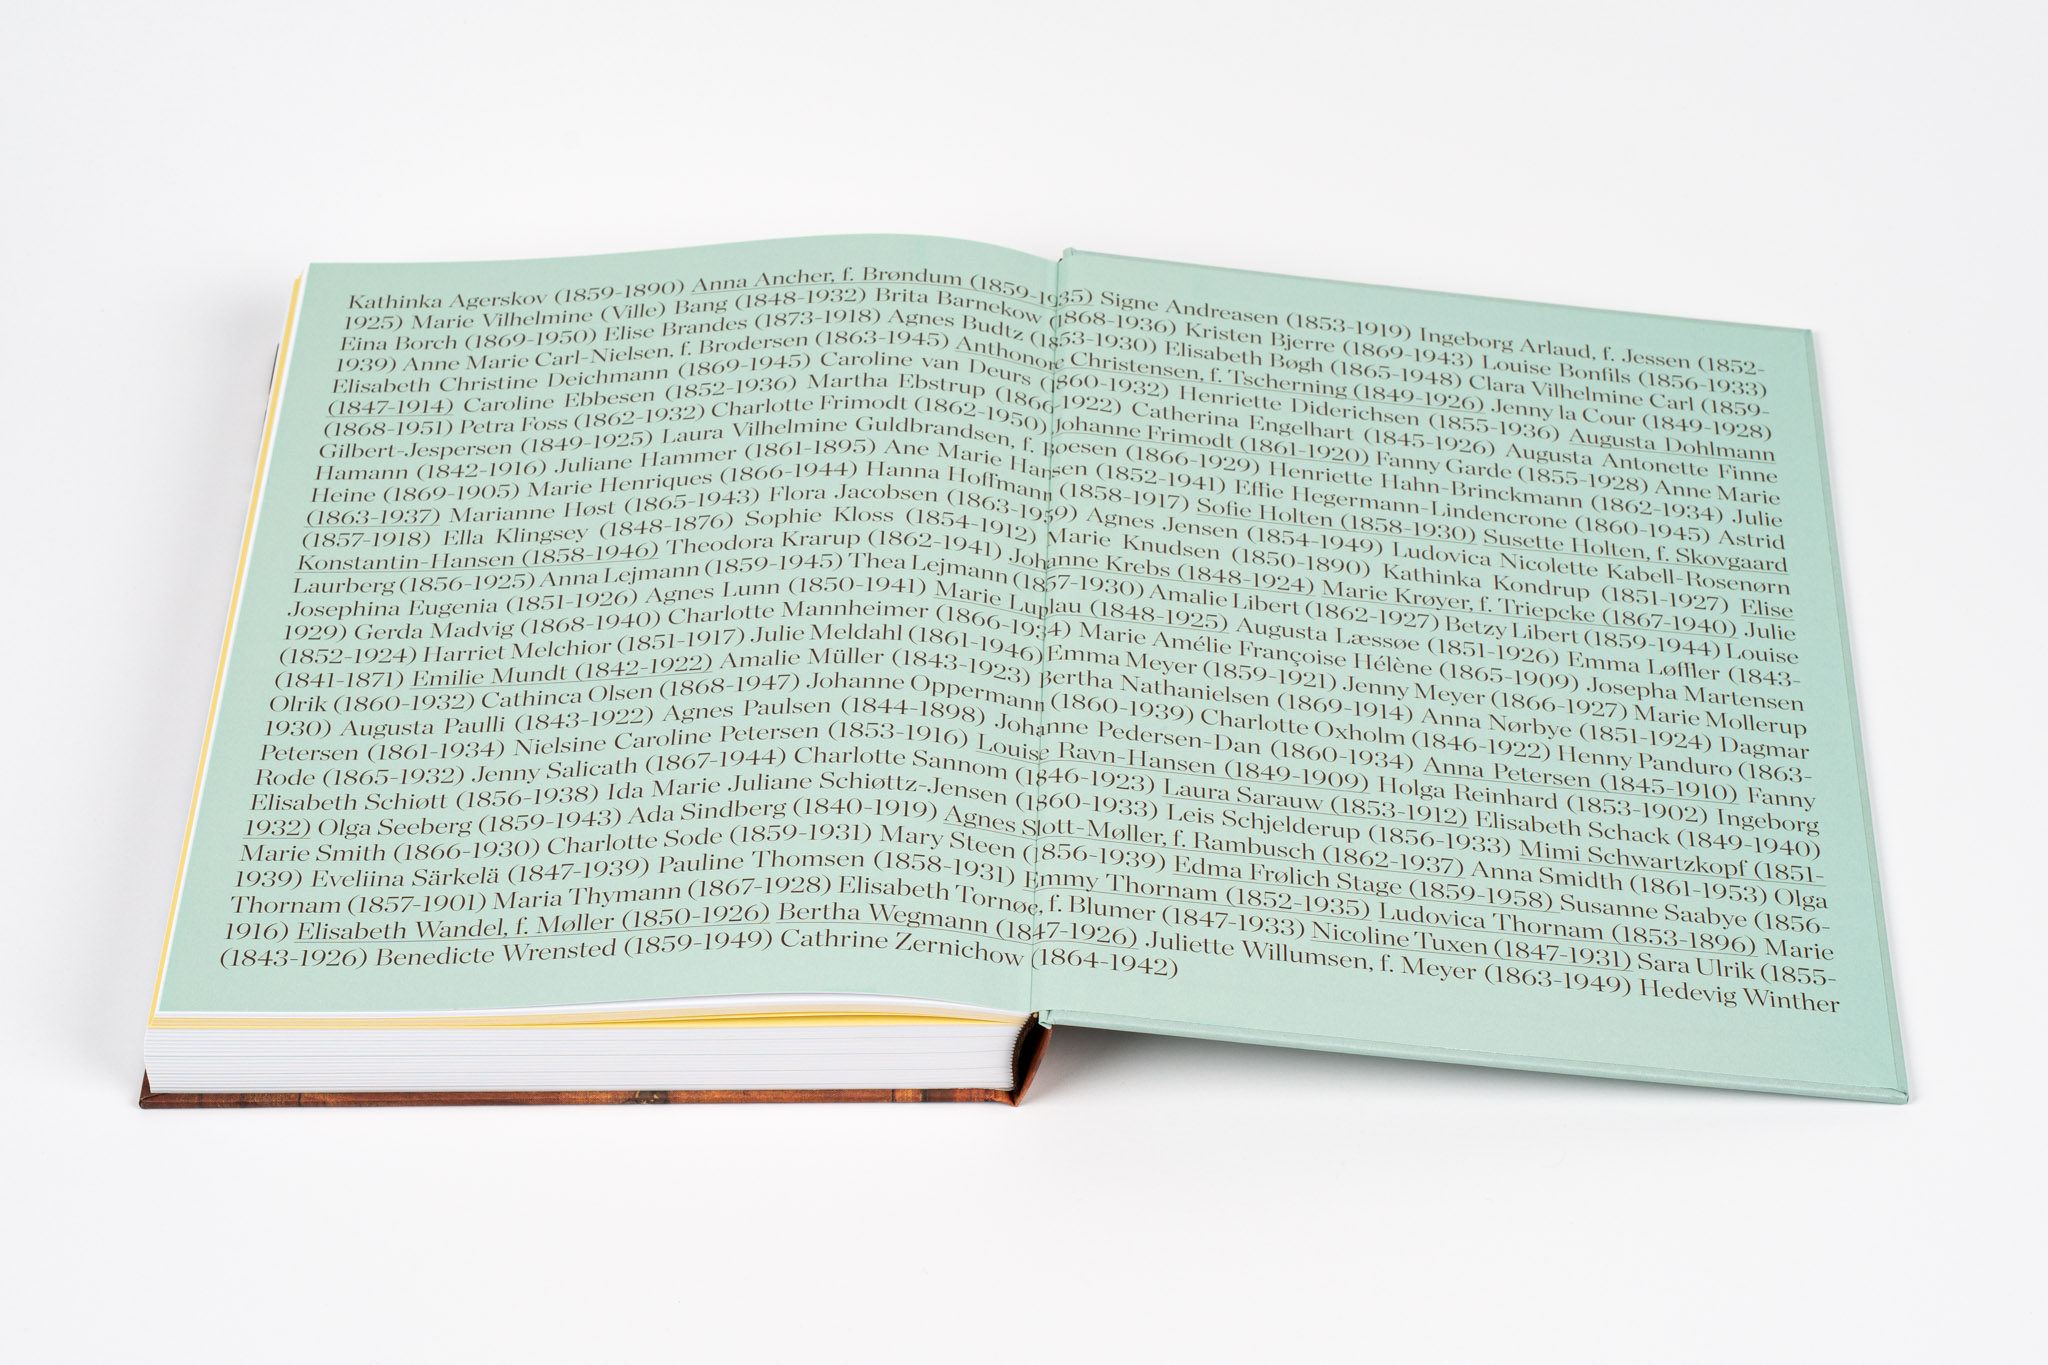 Kathinka Agerskov (1859-1890) Anna Ancher, f. Brøndum (1859-1935) Signe Andreasen (1853-1919) Ingeborg Arlaud, f. Jessen (1852-
1925) Marie Vilhelmine (Ville) Bang (1848-1932) Brita Barnekow (1868-1936) Kristen Bjerre (1869-1943) Louise Bonfils (1856-1933)
Eina Borch (1869-1950) Elise Brandes (1873-1918) Agnes Budtz (1853-1930) Elisabeth Bøgh (1865-1948) Clara Vilhelmine Carl (1859-
1939) Anne Marie Carl-Nielsen, f. Brodersen (1863-1945) Anthonore Christensen, f. Tscherning (1849-1926) Jenny la Cour (1849-1928)
Elisabeth Christine Deichmann (1869-1945) Caroline van Deurs (1860-1932) Henriette Diderichsen (1855-1936) Augusta Dohlmann
(1847-1914) Caroline Ebbesen (1852-1936) Martha Ebstrup (1866-1922) Catherina Engelhart (1845-1926) Augusta Antonette Finne
(1868-1951) Petra Foss (1862-1932) Charlotte Frimodt (1862-1950) Johanne Frimodt (1861-1920) Fanny Garde (1855-1928) Anne Marie
Gilbert-Jespersen (1849-1925) Laura Vilhelmine Guldbrandsen, f. Boesen (1866-1929) Henriette Hahn-Brinckmann (1862-1934) Julie
Hamann (1842-1916) Juliane Hammer (1861-1895) Ane Marie Hansen (1852-1941) Effie Hegermann-Lindencrone (1860-1945) Astrid
Heine (1869-1905) Marie Henriques (1866-1944) Hanna Hoffmann (1858-1917) Sofie Holten (1858-1930) Susette Holten, f. Skovgaard
(1863-1937) Marianne Høst (1865-1943) Flora Jacobsen (1863-1959) Agnes Jensen (1854-1949) Ludovica Nicolette Kabell-Rosenørn
(1857-1918) Ella Klingsey (1848-1876) Sophie Kloss (1854-1912) Marie Knudsen (1850-1890) Kathinka Kondrup (1851-1927) Elise
Konstantin-Hansen (1858-1946) Theodora Krarup (1862-1941) Johanne Krebs (1848-1924) Marie Krøyer, f. Triepcke (1867-1940) Julie
Laurberg (1856-1925) Anna Lejmann (1859-1945) Thea Lejmann (1857-1930) Amalie Libert (1862-1927) Betzy Libert (1859-1944) Louise
Josephina Eugenia (1851-1926) Agnes Lunn (1850-1941) Marie Luplau (1848-1925) Augusta Læssøe (1851-1926) Emma Løffler (1843-
1929) Gerda Madvig (1868-1940) Charlotte Mannheimer (1866-1934) Marie Amélie Françoise Hélène (1865-1909) Josepha Martensen
(1852-1924) Harriet Melchior (1851-1917) Julie Meldahl (1861-1946) Emma Meyer (1859-1921) Jenny Meyer (1866-1927) Marie Mollerup
(1841-1871) Emilie Mundt (1842-1922) Amalie Müller (1843-1923) Bertha Nathanielsen (1869-1914) Anna Nørbye (1851-1924) Dagmar
Olrik (1860-1932) Cathinca Olsen (1868-1947) Johanne Oppermann (1860-1939) Charlotte Oxholm (1846-1922) Henny Panduro (1863-
1930) Augusta Paulli (1843-1922) Agnes Paulsen (1844-1898) Johanne Pedersen-Dan (1860-1934) Anna Petersen (1845-1910) Fanny
Petersen (1861-1934) Nielsine Caroline Petersen (1853-1916) Louise Ravn-Hansen (1849-1909) Holga Reinhard (1853-1902) Ingeborg
Rode (1865-1932) Jenny Salicath (1867-1944) Charlotte Sannom (1846-1923) Laura Sarauw (1853-1912) Elisabeth Schack (1849-1940)
Elisabeth Schiøtt (1856-1938) Ida Marie Juliane Schiøttz-Jensen (1860-1933) Leis Schjelderup (1856-1933) Mimi Schwartzkopf (1851-
1932) Olga Seeberg (1859-1943) Ada Sindberg (1840-1919) Agnes Slott-Møller, f. Rambusch (1862-1937) Anna Smidth (1861-1953) Olga
Marie Smith (1866-1930) Charlotte Sode (1859-1931) Mary Steen (1856-1939) Edma Frølich Stage (1859-1958) Susanne Saabye (1856-
1939) Eveliina Särkelä (1847-1939) Pauline Thomsen (1858-1931) Emmy Thornam (1852-1935) Ludovica Thornam (1853-1896) Marie
Thornam (1857-1901) Maria Thymann (1867-1928) Elisabeth Tornøe, f. Blumer (1847-1933) Nicoline Tuxen (1847-1931) Sara Ulrik (1855-
1916) Elisabeth Wandel, f. Møller (1850-1926) Bertha Wegmann (1847-1926) Juliette Willumsen, f. Meyer (1863-1949) Hedevig Winther
(1843-1926) Benedicte Wrensted (1859-1949) Cathrine Zernichow (1864-1942)